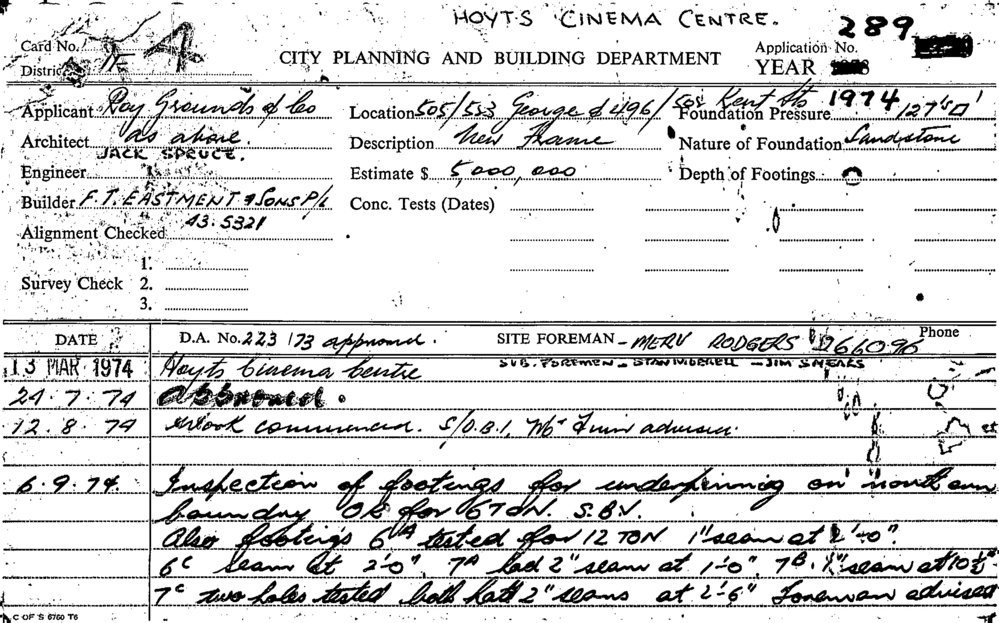 HOYTS CINEMA CENTRE.
289
Card No. 4
CITY PLANNING AND BUILDING DEPARTMENT
Application No.
District
YEAR
1974
Applicant Roy Grounds & Co
Location 505/533 George & 496/508 Kent Sts
Foundation Pressure 12 T's □'
Architect as above.
Description New Frame
Nature of Foundation Sandstone
JACK SPRUCE.
Engineer
Estimate $ 5,000,000
Depth of Footings
Builder F.T. EASTMENT & SONS P/L
Conc. Tests (Dates)
43.5321
Alignment Checked
1.
Survey Check 2.
3.
DATE
D.A. No. 223/73 approved.
SITE FOREMAN - MERV RODGERS 766096 Phone
SUB. FOREMEN - STAN MORRELL - JIM SHEARS
13 MAR 1974 Hoyts Cinema Centre
24.7.74 approved.
12.8.74 Work commenced. S/O.B.I. Mr Finn advised.
6.9.74. Inspection of footings for underpinning on northern
boundry OK for 6 TON. S.B.V.
Also footings 6A tested for 12 TON 1" seam at 2'-0".
6C seam at 2'-0" 7A had 2" seam at 1'-0", 7B. 1" seam at
7C two holes tested both had 2" seams at 2'-6" Foreman advised
C OF S 6760 T6